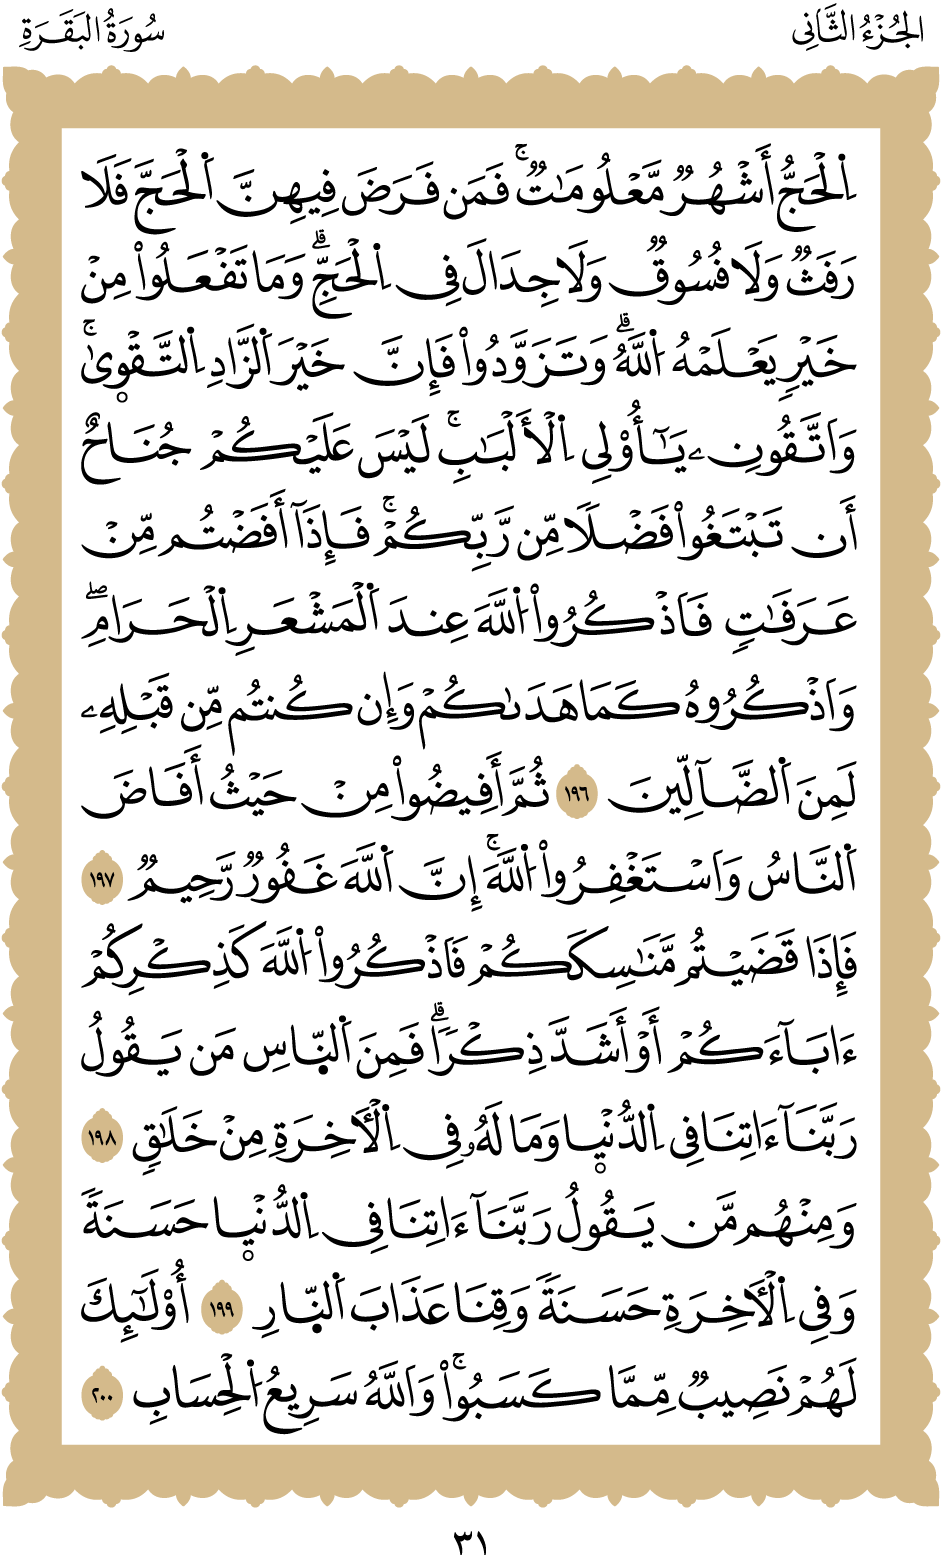 الجُزْءُ الثَّانِى
سُورَةُ البَقَرَةِ
اِ۬لْحَجُّ أَشْهُرٞ مَّعْلُومَٰتٞۚ فَمَن فَرَضَ فِيهِنَّ اَ۬لْحَجَّ فَلَا
رَفَثٞ وَلَا فُسُوقٞ وَلَا جِدَالَ فِى اِ۬لْحَجِّۗ وَمَا تَفْعَلُواْ مِنْ
خَيْرٖ يَعْلَمْهُ اُ۬للَّهُۗ وَتَزَوَّدُواْ فَإِنَّ خَيْرَ اَ۬لزَّادِ اِ۬لتَّقْو۪ىٰۚ
وَاتَّقُونِۦ يَٰٓأُوْلِى اِ۬لْأَلْبَٰبِۚ لَيْسَ عَلَيْكُمْ جُنَاحٌ
أَن تَبْتَغُواْ فَضْلاٗ مِّن رَّبِّكُمْۚ فَإِذَآ أَفَضْتُم مِّنْ
عَرَفَٰتٖ فَاذْكُرُواْ اُ۬للَّهَ عِندَ اَ۬لْمَشْعَرِ اِ۬لْحَرَامِۖ
وَاذْكُرُوهُ كَمَا هَدَىٰكُمْ وَإِن كُنتُم مِّن قَبْلِهِۦ
لَمِنَ اَ۬لضَّآلِّينَ ١٩٦ ثُمَّ أَفِيضُواْ مِنْ حَيْثُ أَفَاضَ
اَ۬لنَّاسُ وَاسْتَغْفِرُواْ اُ۬للَّهَۚ إِنَّ اَ۬للَّهَ غَفُورٞ رَّحِيمٞ ١٩٧
فَإِذَا قَضَيْتُم مَّنَٰسِكَكُمْ فَاذْكُرُواْ اُ۬للَّهَ كَذِكْرِكُمْ
ءَابَآءَكُمْ أَوْ أَشَدَّ ذِكْراٗۗ فَمِنَ اَ۬لنّ۪اسِ مَن يَقُولُ
رَبَّنَآ ءَاتِنَا فِى اِ۬لدُّنْي۪ا وَمَا لَهُۥ فِى اِ۬لْأٓخِرَةِ مِنْ خَلَٰقٖ ١٩٨
وَمِنْهُم مَّن يَقُولُ رَبَّنَآ ءَاتِنَا فِى اِ۬لدُّنْي۪ا حَسَنَةٗ
وَفِى اِ۬لْأٓخِرَةِ حَسَنَةٗ وَقِنَا عَذَابَ اَ۬لنّ۪ارِ ١٩٩ أُوْلَٰٓئِكَ
لَهُمْ نَصِيبٞ مِّمَّا كَسَبُواْۚ وَاللَّهُ سَرِيعُ اُ۬لْحِسَابِ ٢٠٠
٣١